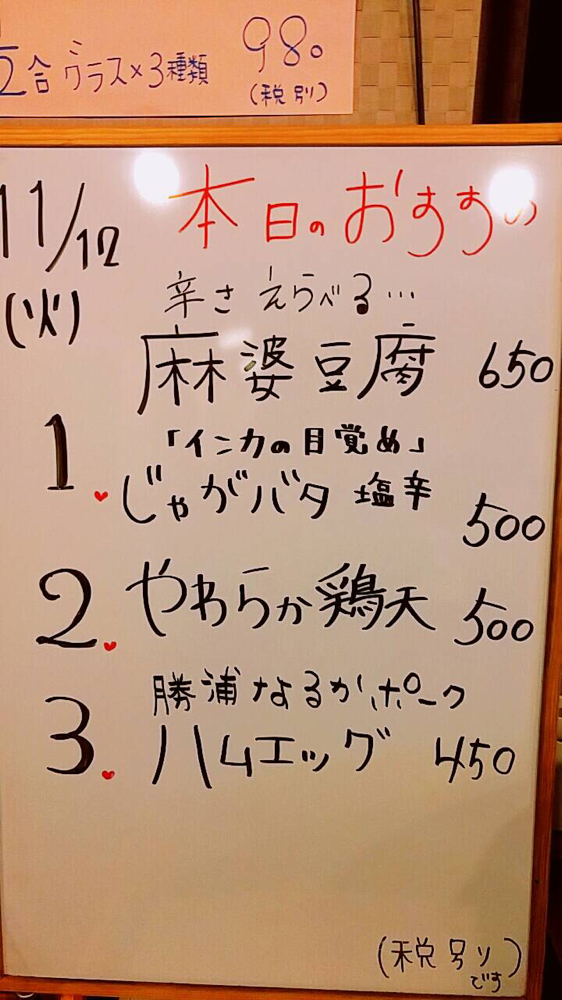 1/2合グラス×3種類 980
(税別)
11/12
(火)
本日のおすすめ
辛さえらべる…
麻婆豆腐 650
「インカの目覚め」
1. じゃがバタ 塩辛 500
2. やわらか鶏天 500
勝浦なるかポーク
3. ハムエッグ 450
(税別り)
です